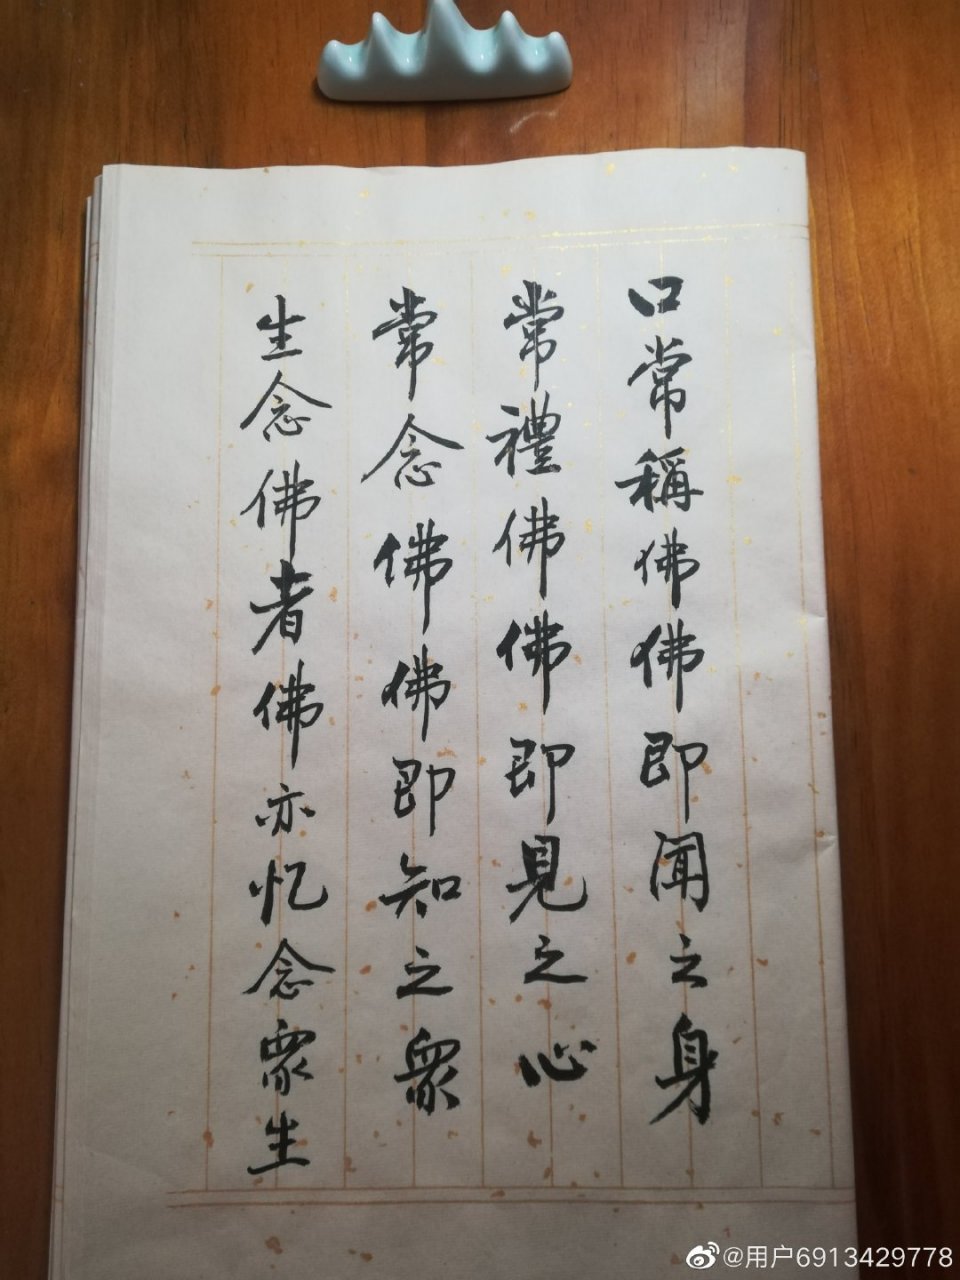 口常稱佛佛即聞之身
常禮佛佛即見之心
常念佛佛即知之眾
生念佛者佛亦忆念眾生
@用户6913429778